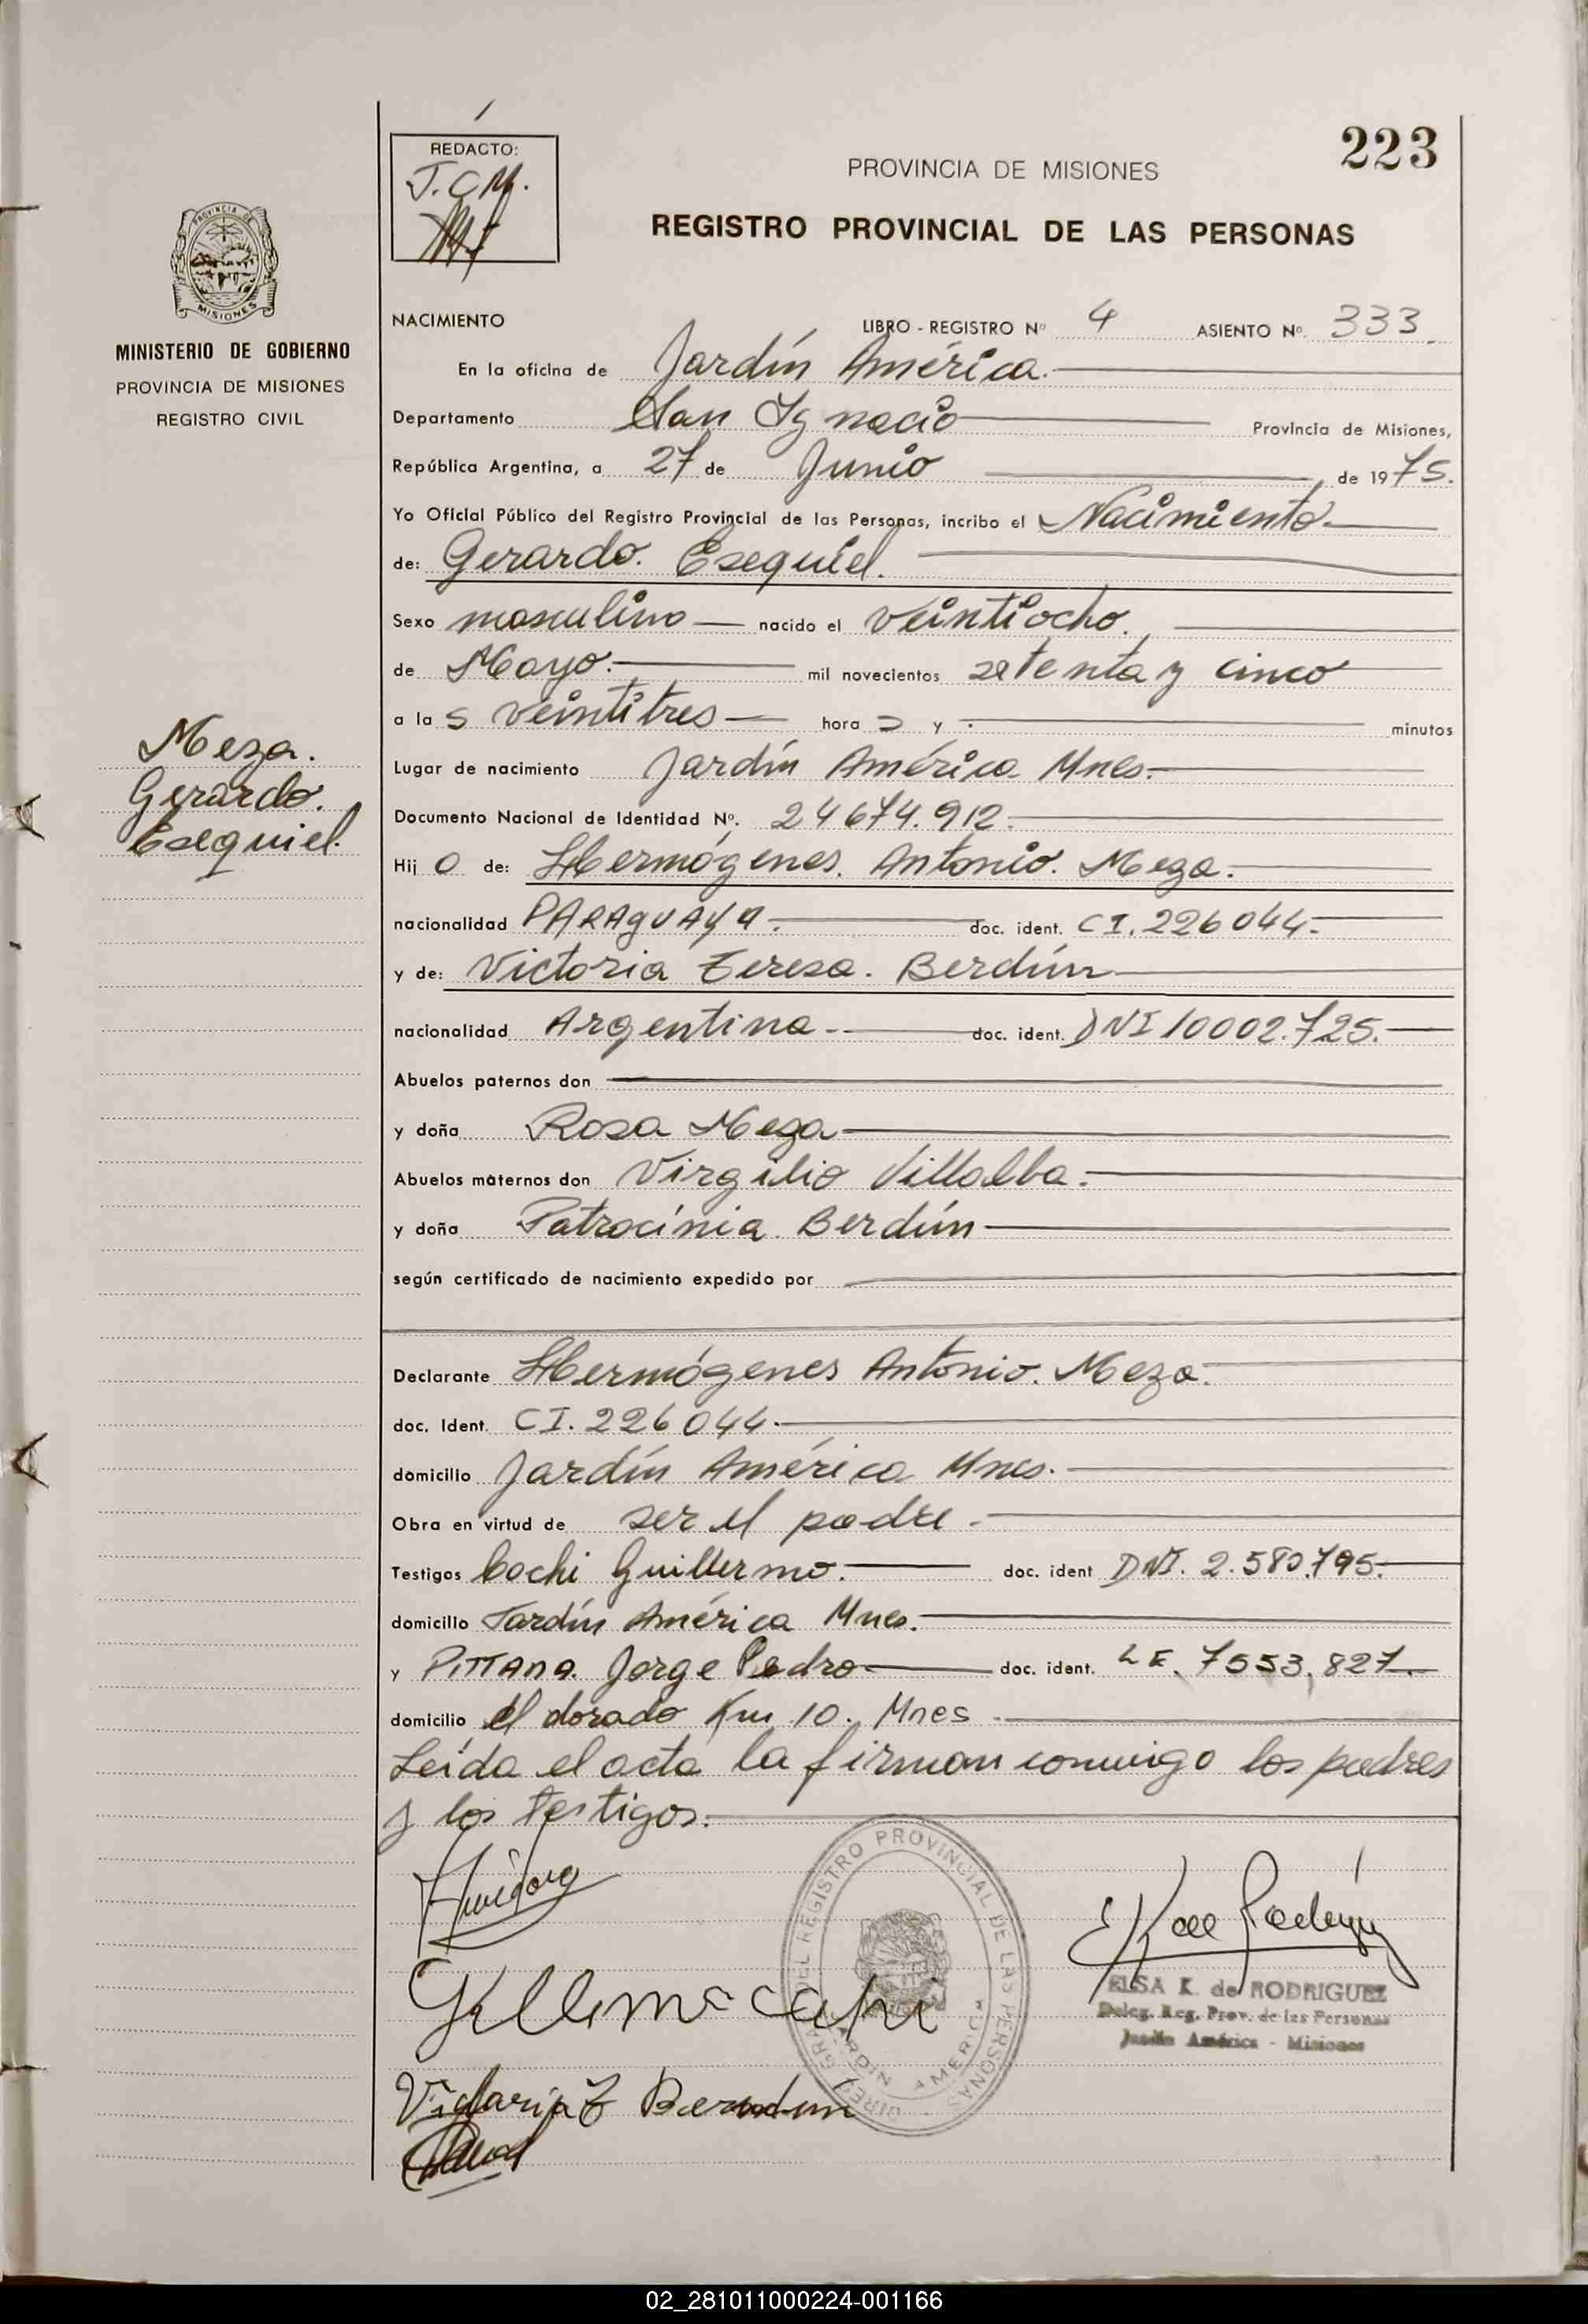 223
REDACTO:
J.C.M.
PROVINCIA DE MISIONES
REGISTRO PROVINCIAL DE LAS PERSONAS
PROVINCIA DE
MISIONES
MINISTERIO DE GOBIERNO
PROVINCIA DE MISIONES
REGISTRO CIVIL
NACIMIENTO LIBRO - REGISTRO Nº 4 ASIENTO Nº. 333
En la oficina de Jardín América.
Departamento San Ignacio Provincia de Misiones,
República Argentina, a 27 de Junio de 1975.
Yo Oficial Público del Registro Provincial de las Personas, incribo el Nacimiento
de: Gerardo. Esequiel.
Sexo masculino nacido el veintiocho.
de Mayo. mil novecientos setenta y cinco
a la s veintitres hora s y minutos
Lugar de nacimiento Jardín América Mnes.
Documento Nacional de Identidad Nº. 24674.912.
Hij o de: Hermógenes. Antonio. Meza.
nacionalidad PARAguAyA. doc. ident. CI. 226044.
y de: Victoria Teresa. Berdún
nacionalidad Argentina. doc. ident. DNI 10002.725.
Abuelos paternos don
y doña Rosa Meza
Abuelos maternos don Virgilio Villalba.
y doña Patrocinia Berdún
según certificado de nacimiento expedido por
Declarante Hermógenes Antonio. Meza.
doc. Ident. CI. 226044.
domicilio Jardín América Mnes.
Obra en virtud de ser el padre.
Testigos Cochi Guillermo. doc. ident DNI. 2.580.795.
domicilio Jardín América Mnes.
y PITTANA. Jorge Pedro doc. ident. LE. 7553,827
domicilio el dorado Km 10. Mnes
Leída el acta la firman conmigo los padres
y los testigos.
Meza.
Gerardo.
Esequiel.
DIREC. GRAL. DEL REGISTRO PROVINCIAL DE LAS PERSONAS
JARDIN AMERICA
ELSA K. de RODRIGUEZ
Deleg. Reg. Prov. de las Personas
Jardín América - Misiones
Victoria T Berdun
02_281011000224-001166